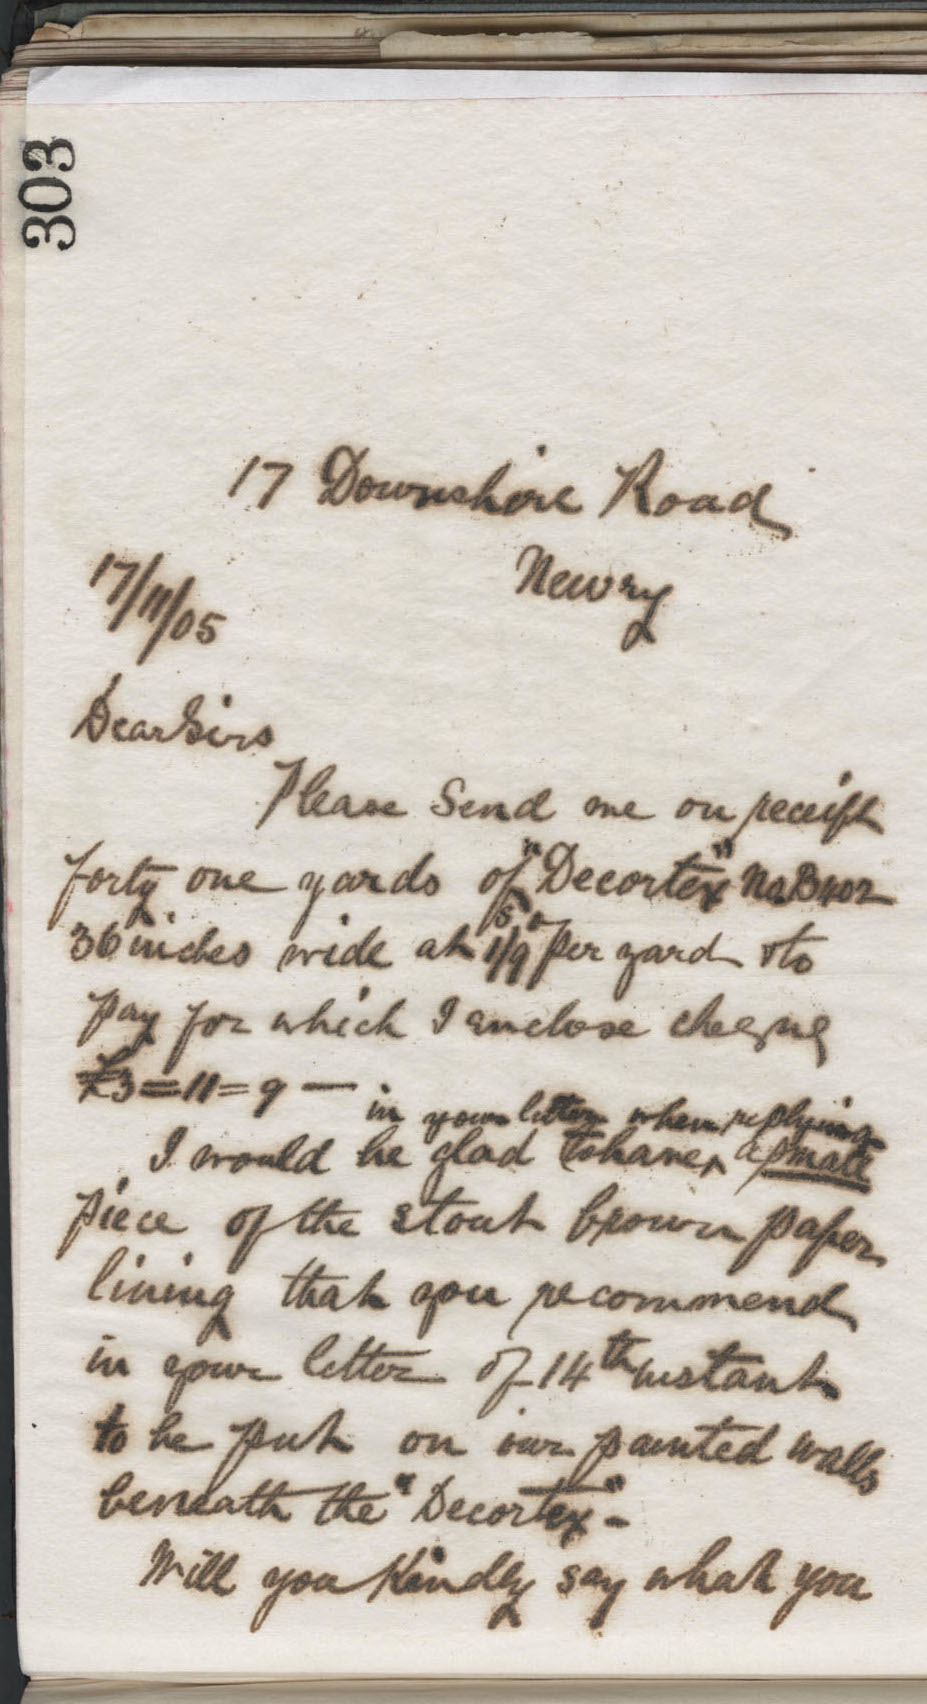 303
17 Downshire Road
Newry
17/11/05
Dear Sirs
Please Send me on receipt
forty one yards of "Decortex" No. B402
36 inches wide at 1s/9d per yard & to
pay for which I enclose cheque
£3=11=9 —
in your letter when replying
I would be glad to have ‸ a small
piece of the stout brown paper
lining that you recommend
in your letter of 14th instant
to be put on our painted walls
beneath the "Decortex" -
Will you Kindly say what you